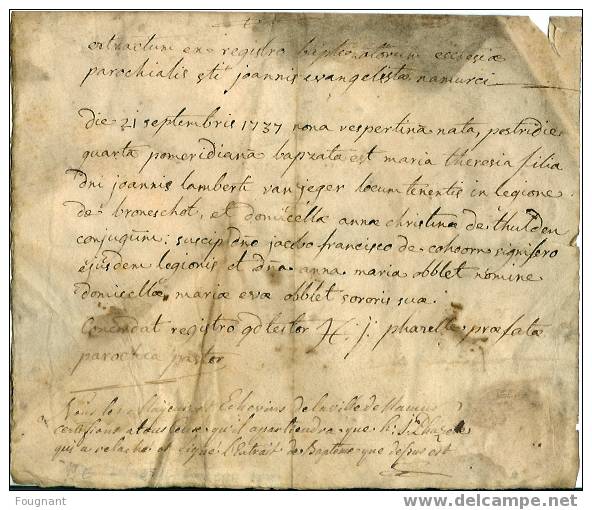 extractum ex registro baptizatorum ecclesiæ
parochialis sti joannis evangelistæ namurci
die 21 septembris 1737 nona vespertina nata, postridie
quarta pomeridiana bapzata est maria theresia filia
dni joannis lamberti van jeger locum tenentis in legione
de broneschot, et domicellæ annæ christinæ de thulden
conjugum: suscip dño jacobo francisco de cohoorn signifero
ejusdem legionis et dña anna maria obblet nomine
domicellæ mariæ evæ obblet sororis suæ.
Concordat registro qd testor H: j: pharelle præfatæ
parochiæ pastor
Nous les Majeur et Echevins de la ville de Namur
certifions a tous ceux qu'il appartiendra que le Sr
qui a relaché et signé l'Extrait de Baptême que dessus est
Fougnant
www.delcampe.net